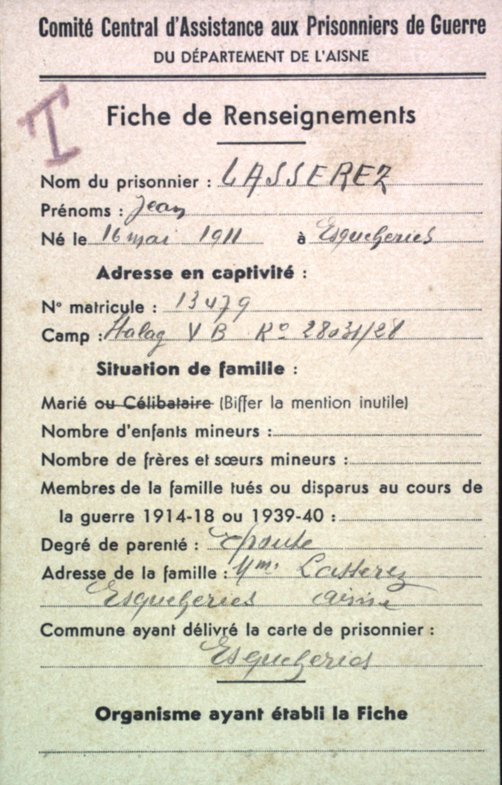 Comité Central d'Assistance aux Prisonniers de Guerre
DU DÉPARTEMENT DE L'AISNE
I
Fiche de Renseignements
Nom du prisonnier : LASSEREZ
Prénoms : Jean
Né le 16 mai 1911 à Esqueheries
Adresse en captivité :
N° matricule : 13479
Camp : Stalag V B K° 28031/28
Situation de famille :
Marié ou Célibataire (Biffer la mention inutile)
Nombre d'enfants mineurs :
Nombre de frères et sœurs mineurs :
Membres de la famille tués ou disparus au cours de
la guerre 1914-18 ou 1939-40 :
Degré de parenté : Epouse
Adresse de la famille : Mme Lasserez
Esqueheries Aisne
Commune ayant délivré la carte de prisonnier :
Esqueheries
Organisme ayant établi la Fiche